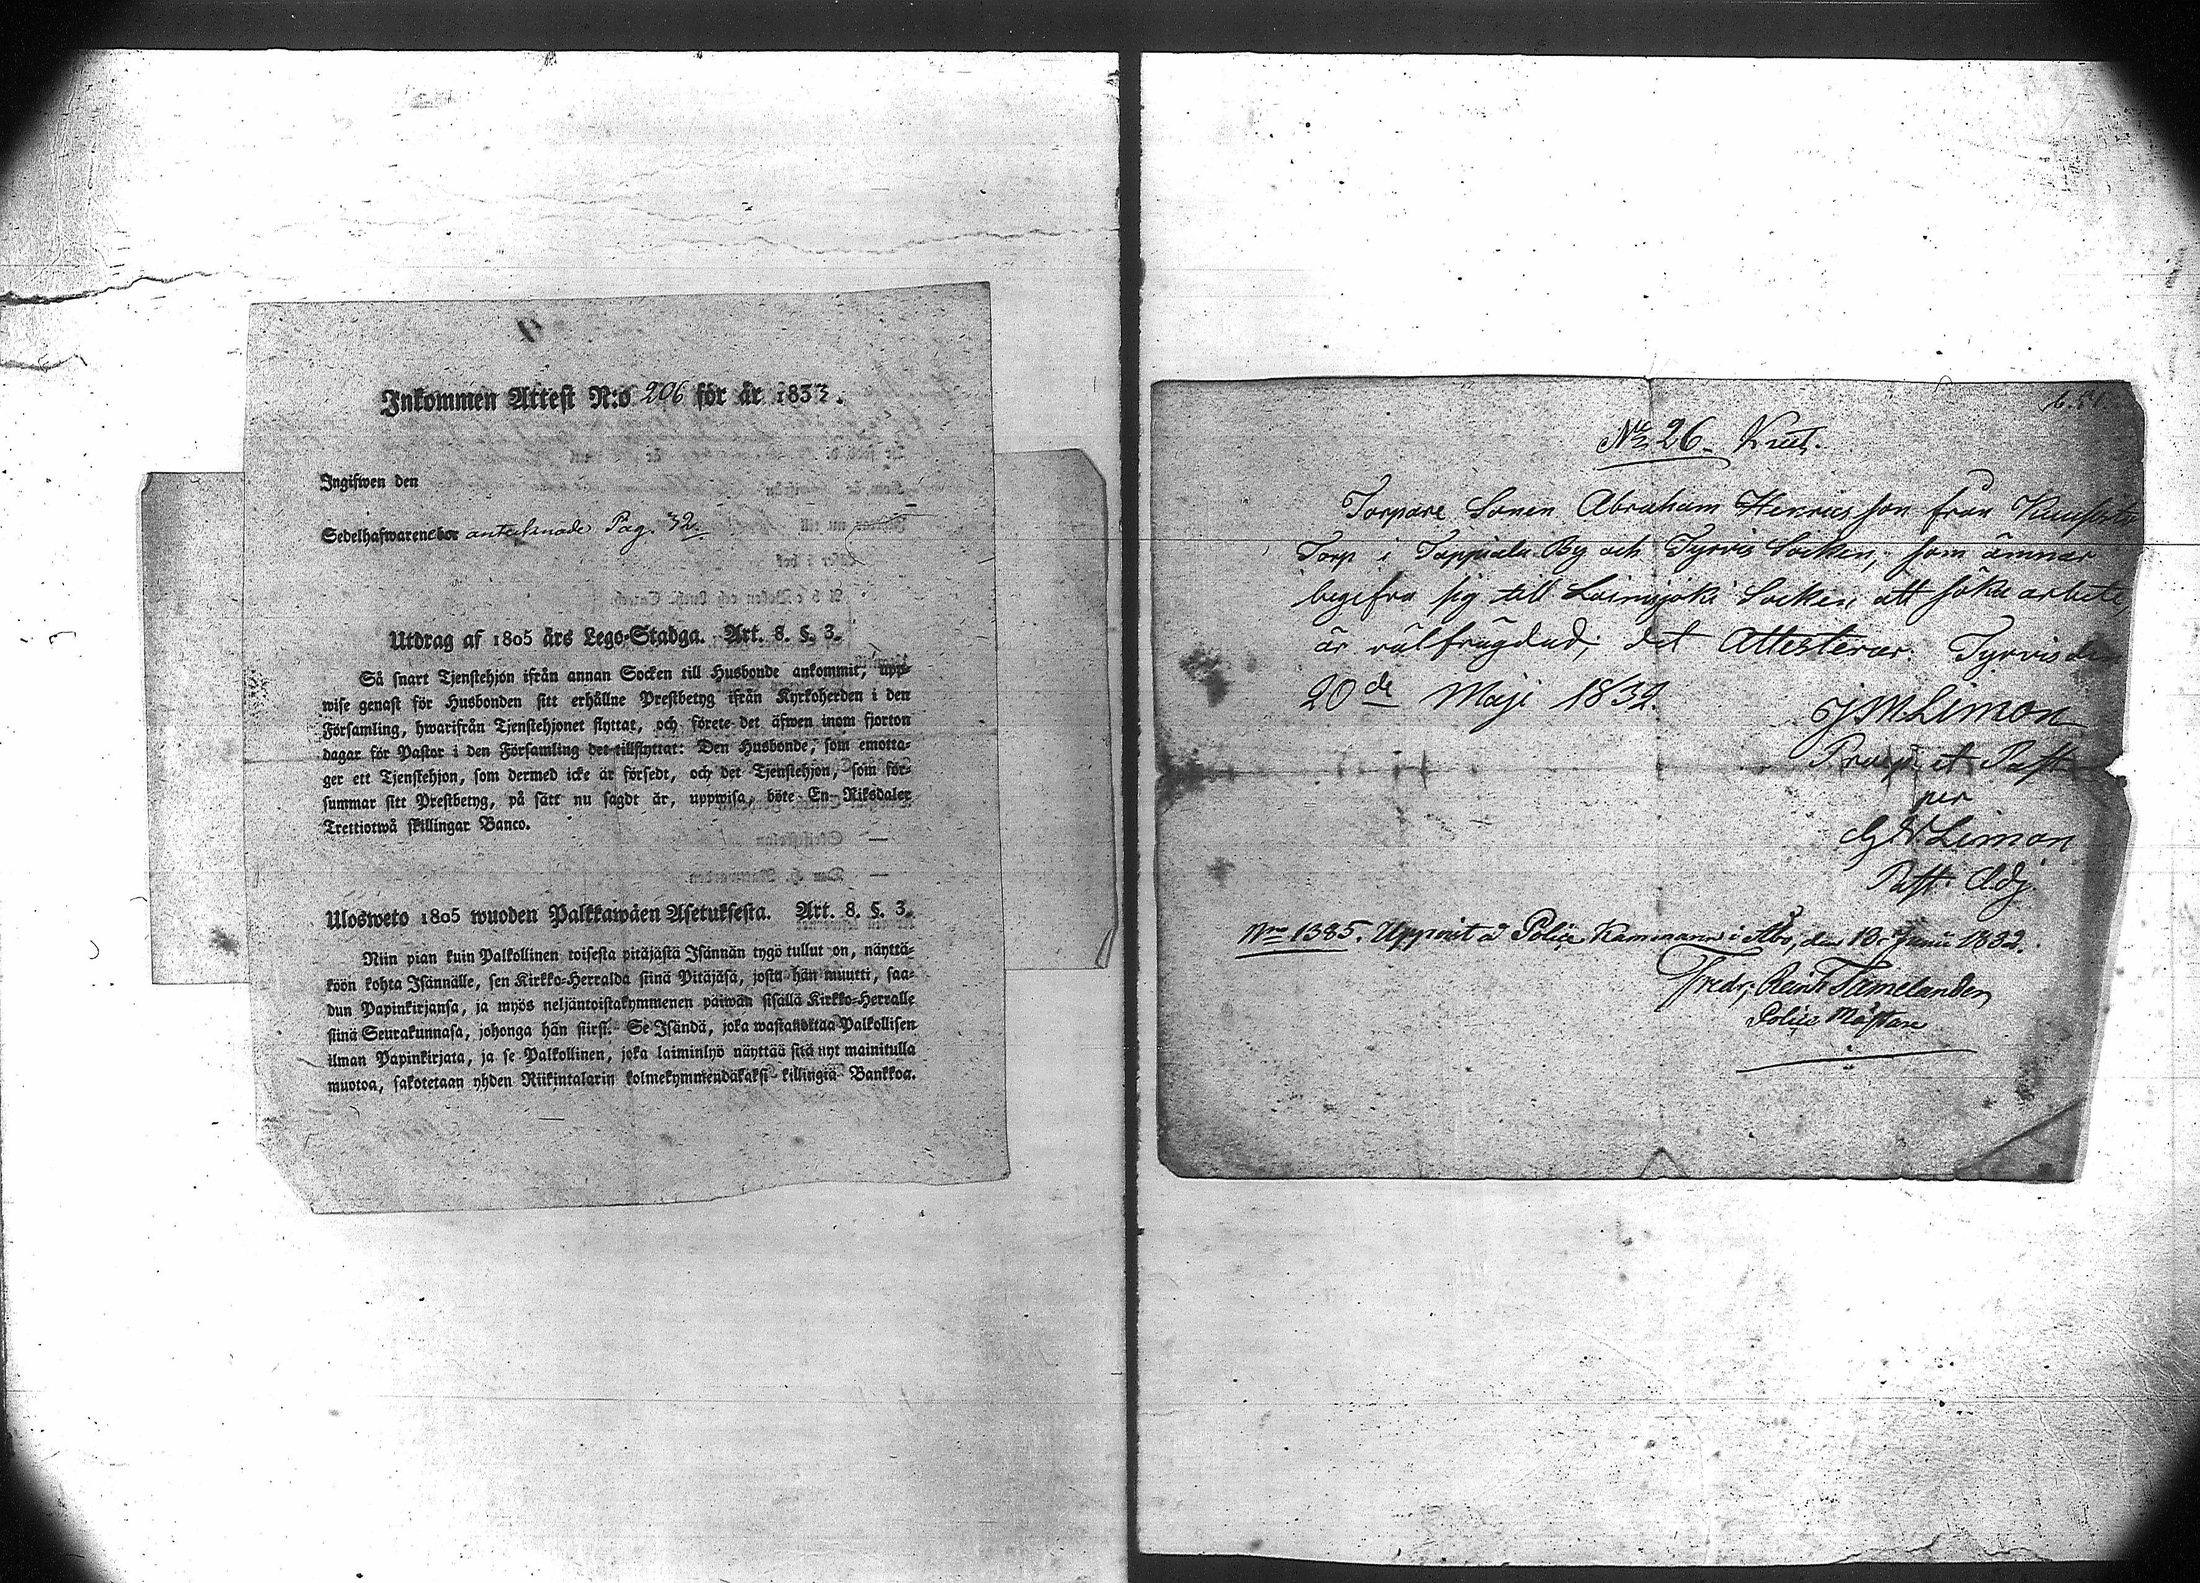 Inkommen Attest N:o 206 för år 1833.
Ingifwen den
Sedelhafwarene bor antecknade Pag. 32.
Utdrag af 1805 års Lego-Stadga. Art. 8. §. 3.
Så snart Tjenstehjon ifrån annan Socken till Husbonde ankommit, upp-
wise genast för Husbonden sitt erhållne Prestbetyg ifrån Kyrkoherden i den
Församling, hwarifrån Tjenstehjonet flyttat, och förete det äfwen inom fjorton
dagar för Pastor i den Församling det tillflyttat: Den Husbonde, som emotta-
ger ett Tjenstehjon, som dermed icke är försedt, och det Tjenstehjon, som för-
summar sitt Prestbetyg, på sätt nu sagdt är, uppwisa, böte En Riksdaler
Trettiotwå skillingar Banco.
Ulosweto 1805 wuoden Palkkawäen Asetuksesta. Art. 8. §. 3.
Niin pian kuin Palkollinen toisesta pitäjästä Isännän tygö tullut on, näyttä-
köön kohta Isännälle, sen Kirkko-Herralda siinä Pitäjäsä, josta hän muutti, saa-
dun Papinkirjansa, ja myös neljäntoistakymmenen päiwän sisällä Kirkko-Herralle
siinä Seurakunnasa, johonga hän siirsi. Se Isändä, joka wastanottaa Palkollisen
ilman Papinkirjata, ja se Palkollinen, joka laiminlyö näyttää sitä nyt mainitulla
muotoa, sakotetaan yhden Riikintalarin kolmekymmendäkaksi killingiä Bankkoa.
No 26
Torpare Sonen Abraham Henricsson från
Torp i By och Tyrvis Socken, som ämnar
begifva sig till Loimijoki Socken att söka arbete,
är välfrägdad; det Attesterar. Tyrvis den
20de Maji 1832.
J M Limon
Præp. et Past.
per
G W. Limon
Past. Adj.
No 1385. Uppvist å Police Kammaren i Åbo, den 13 Junii 1832.
Fredr. Reinh.
Police Mästare